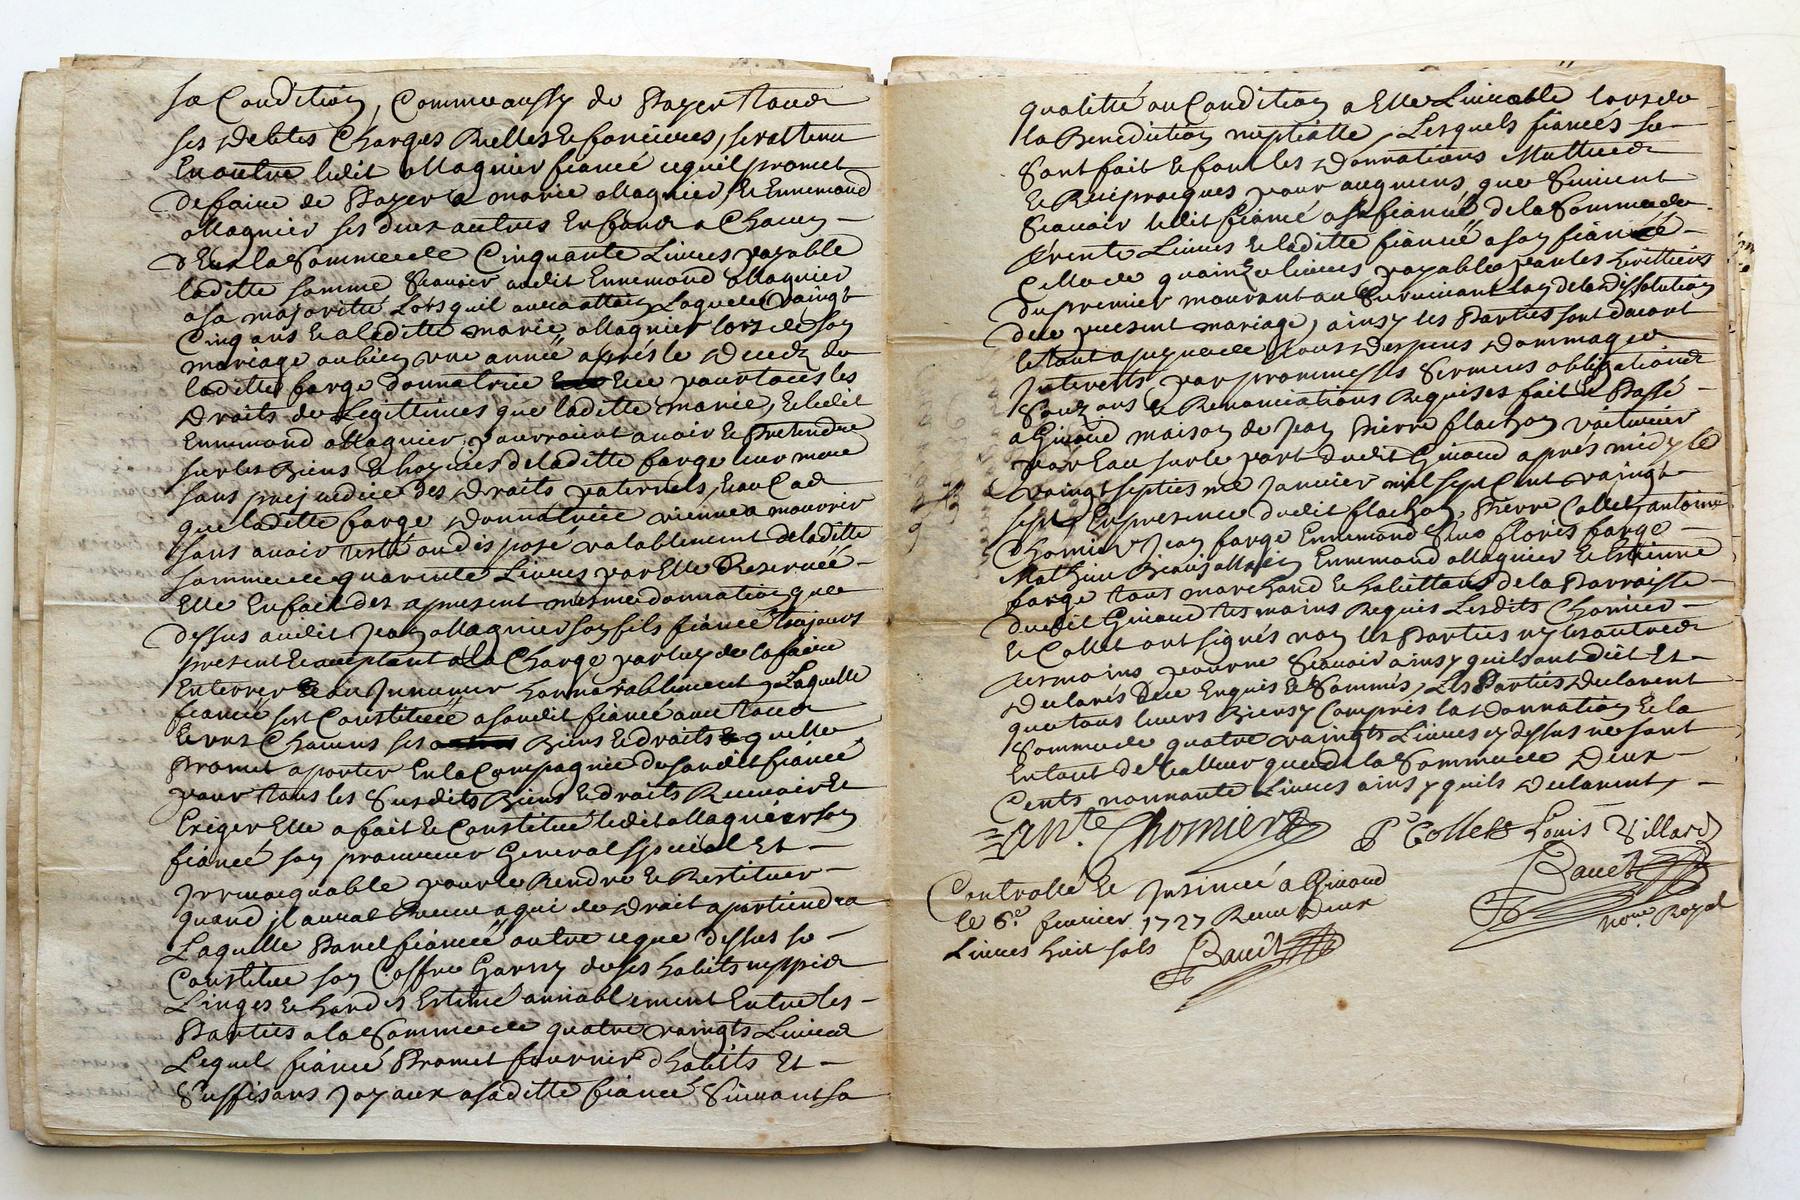 sa Condition, Comme aussy de Payer touts
ses debtes Charges Reelles & foncieres, sera tenu
En outre ledit Magnier fiancé ce quil promet
de faire de Payer a marie Magnier, & Ennemond
Magnier ses deux autres Enfants a Chacun
d'Eux la Somme de Cinquante Livres payable
laditte somme Scavoir audit Ennemond Magnier
a sa majorité Lors quil aura attain Laage de vaingt
Cinq ans & a laditte marie Magnier lors de son
mariage ou bien une année aprés le Decedz de
laditte farge donnatrice Ece pour tous les
Droits de Legittimes que laditte marie, & ledit
Ennemond Magnier pourroient avoir & Pretendre
sur les Biens & hoyries de laditte farge leur mere
sans prejudice des Droits paternels, & au Cas
que laditte farge Donnatrice vienne a mourrir
sans avoir testé ou disposé valablement de laditte
somme de quarente Livres par Elle Reservée
Elle En fait dez apresent mesme donnation que
dessus audit Jean Magnier son fils fiancé toujours
present & acceptant a la Charge par luy de la faire
Enterrer & Jnnumer honnorablement, Laquelle
fiancée sest Constituée a sondit fiancé avec touts
& uns Chacuns ses Biens & droits quelle
Promet aporter En la Compagnie du sondit fiancé
pour touts les Susdits Biens & droits Recevoir &
Exiger Elle a fait & Constitué ledit Magnier son
fiancé son procureur General special Et
Jrrevocquable pour le Rendre & Restituer
quand il aura Receu a qui de Droit apartiendra
Laquelle Parel fiancée outre ce que dessus se
Constitue son Coffre Garny de ses habits nippes
Linges & hardes Estimé amiablement Entre les
Parties a la Somme de quatre vaingts Livres
Lequel fiancé Promet fournir d'habits Et
Suffisans Joyaux a saditte fiancée Suivant sa
qualitté ou Condition a Elle Livrable lors de
la Benediction nuptialle, Lesquels fiancés se
Sont fait & font les Donnations Mutuels
& Reciprocques pour augmens que Suivent
Scavoir ledit fiancé a sa fiancée de la Somme de
trente Livres & laditte fiancée a son fiancé
Celle de quainze livres payable par les heritiers
du premier mourant au Survivant lors de la dissolution
du present mariage, ainsy les Parties sont dacord
le tout a peyne de tous despens Dommages
Jnterests par promesses Sermens obligations
Soumissions & Renonciations Requises fait & Passé
a Givord maison de Jean Pierre flachon voiturier
par Eau sur le port dudit Givord aprés midy le
vaingt septiesme Janvier mil sept Cent vaingt
sept En presence dudit flachon, Pierre Collet, antoine
Chomier Jean farge Ennemond flores farge
Mathieu Ennemond Magnier & Estienne
farge tous marchand & habittants de la Parroisse
dudit Givord tesmoins Requis Lesdits Chomier
& Collet ont signés non les Parties ny les autres
tesmoins pour ne Scavoir ainsy quils ont dict Et
Declarés De ce Enquis & Sommés, Les Parties Declarent
que tous leurs Biens y Compris la Donnation & la
Somme de quatre vaingts Livres cy dessus ne sont
En tout de valleur que de la Somme de Deux
Cents nonnante Livres ainsy quils Declarent,
ant. Chomier P Collet Louis Villard
Bauet
no.re Royal
Controllé & Jnsinué a Givord
le 6.e fevrier 1727 Receu Deux
Livres huit sols Bauet